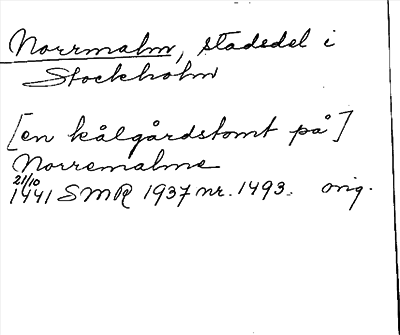 Norrmalm, stadsdel i
Stockholm
[en kålgårdstomt på]
Norremalme
21/10
1441 SMR 1937 nr. 1493. orig.